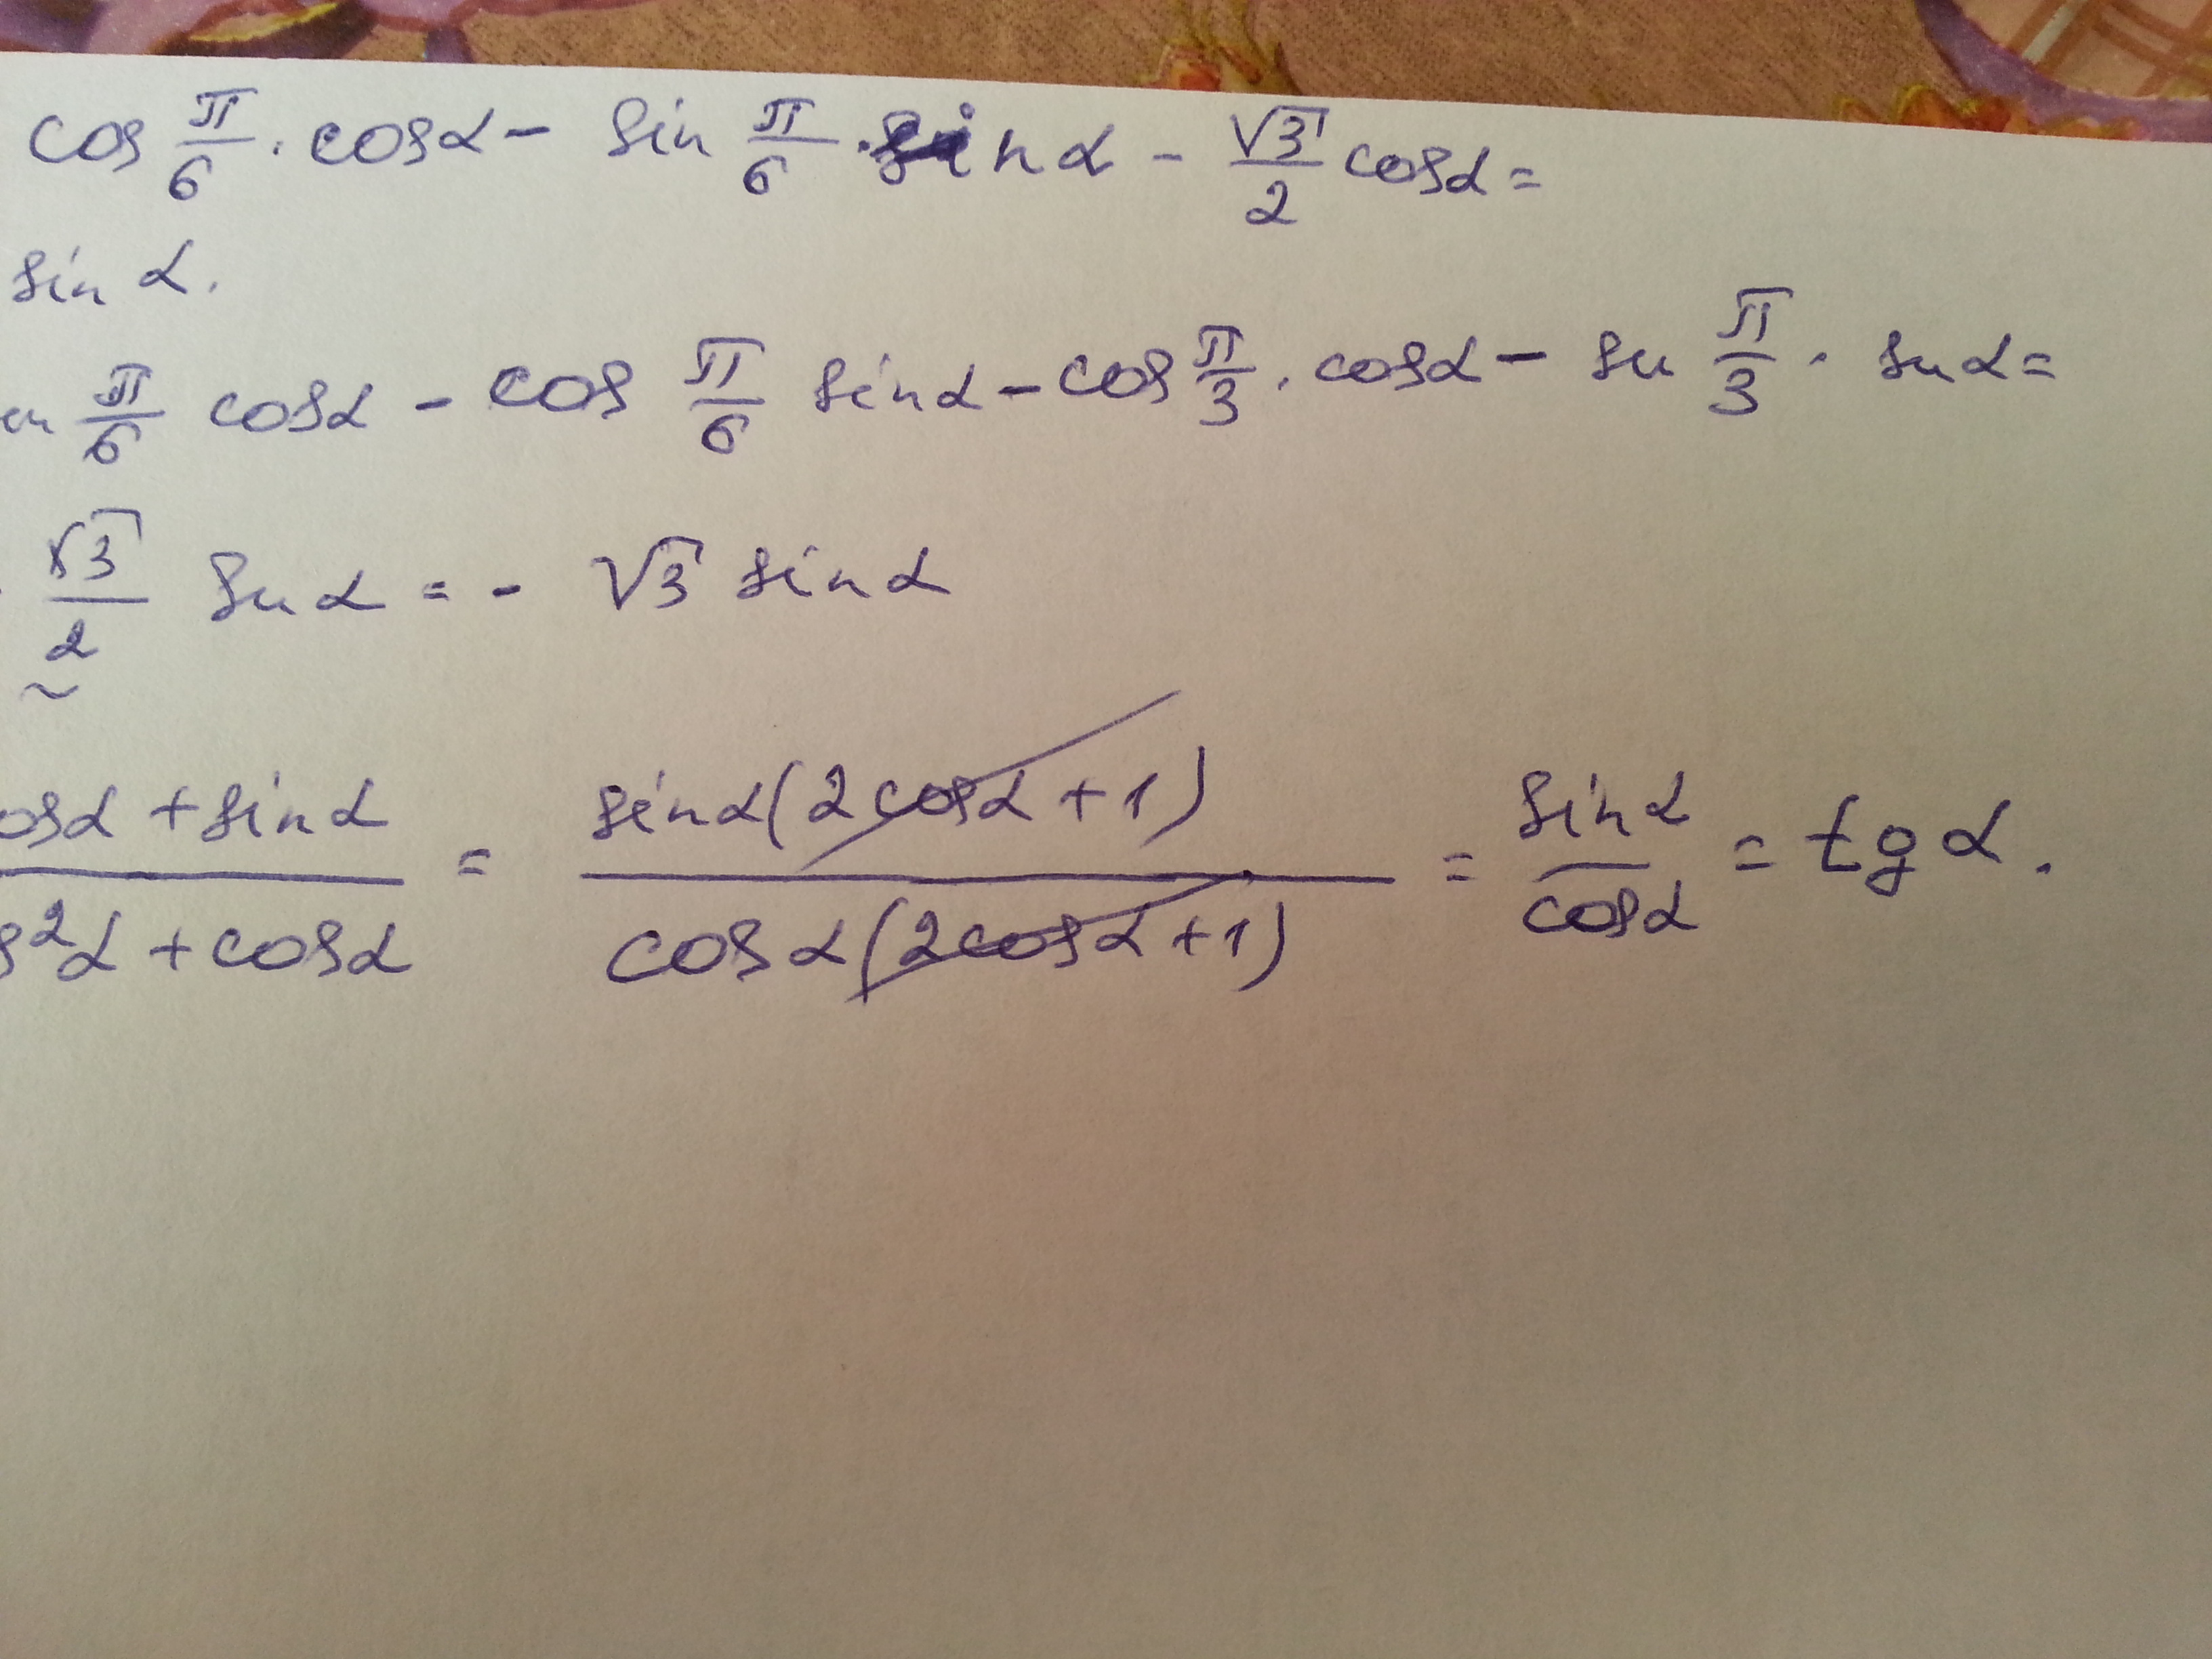 cos π/6 · cosα - sin π/6 · sin α - √3/2 cosα =
sin α.
π/6 cosα - cos π/6 sinα - cos π/3 · cosα - sin π/3 · sinα =
√3/2 sinα = - √3 sinα
osα + sinα / s²α + cosα = sinα(2cosα + 1) / cosα(2cosα + 1) = sinα / cosα = tgα.